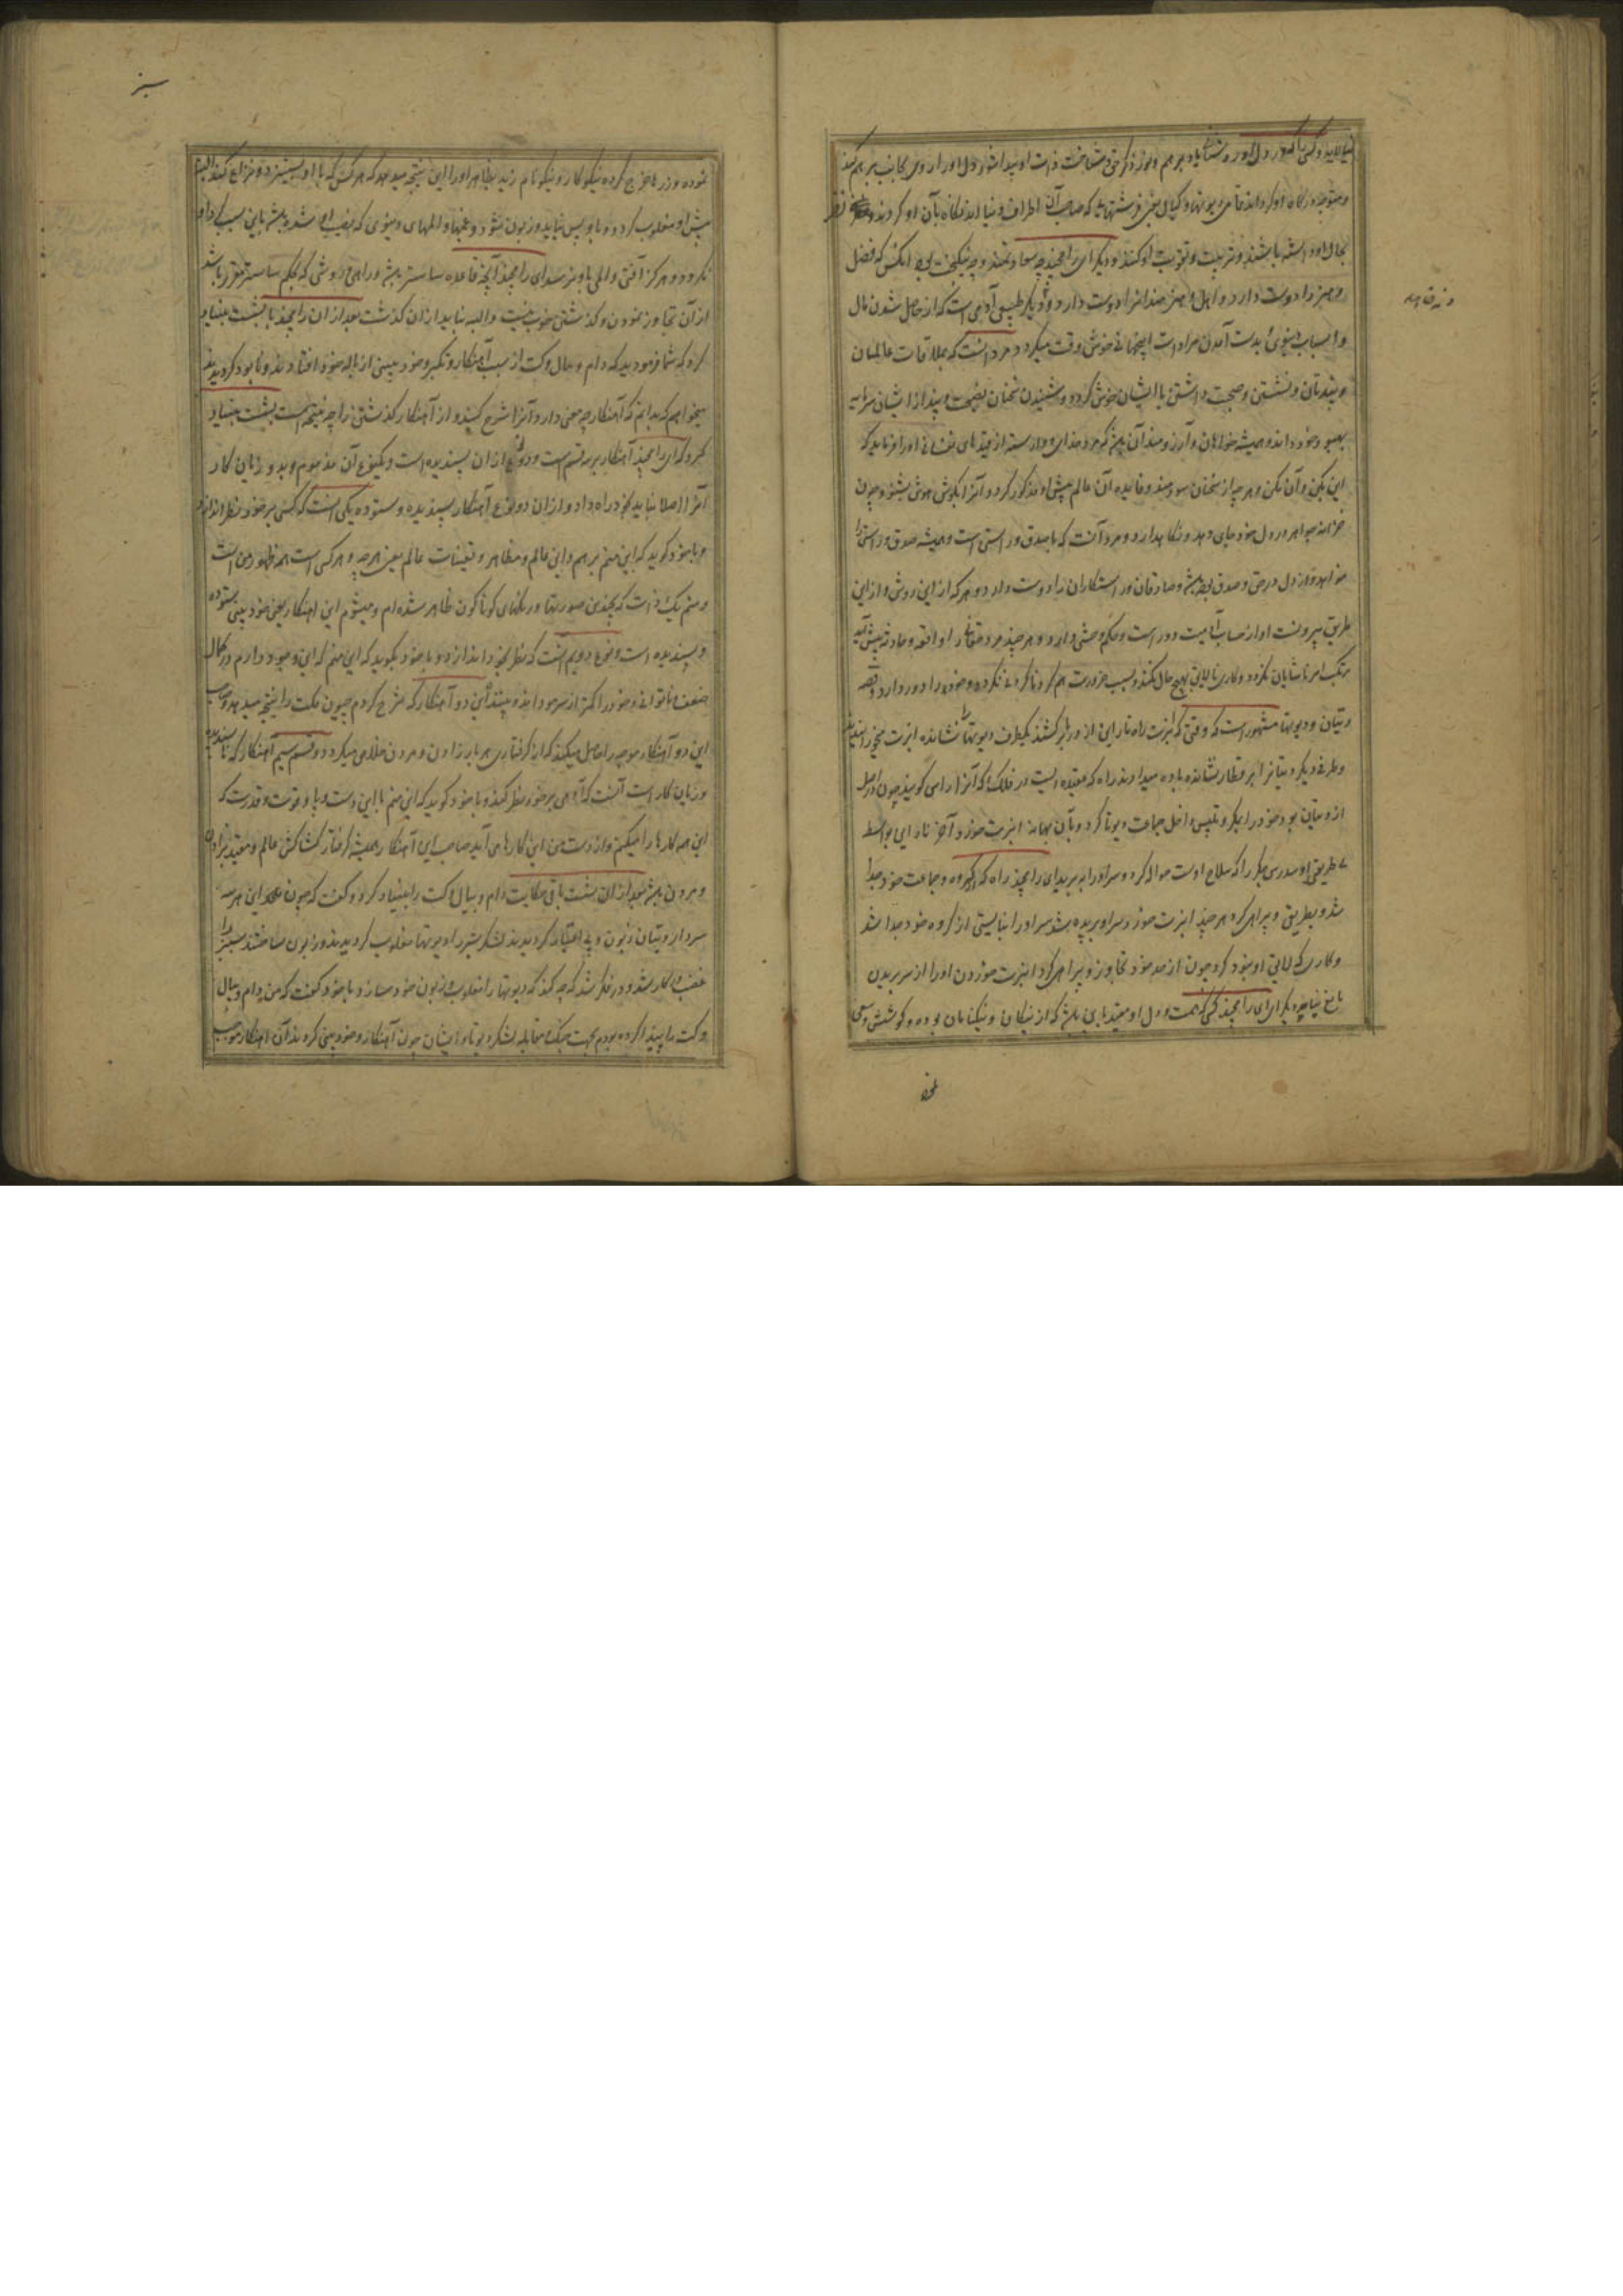 و متوجه درگاه او گرداند تمامی دیوتها و کیال یعنی فرشتهای که صاحب آن اطراف دنیا اند نگاه بآن او کردند و نظر
بحال او داشته باشند و تربیت و تقویت او کنند و دیگر ای رامچند چه سعادتمند و چه نیکبخت بود آنکس که فضل
و هنر را دوست دارد و اهل و هنرمندانرا دوست دارد و دیگر طبیعی آدمی است که از حاصل شدن مال
و اسباب دنیوی و بدست آمدن مرادات اینجهانی خوش وقت میگردد مرد آنست که بملاقات عالمان
و پندتان و نشستن و صحبت داشتن با ایشان خوش گردد و شنیدن سخنان نصیحت و پند از ایشان سرمایه
بهبود خود داند و همیشه خواهان و آرزومند آن باشد که مرد خدای وارسته از قیدهای نفسانی او را فرماید که
این بکن و آن نکن و هر چه از سخنان سودمند و فایده آن عالم پیش او مذکور گردد آنرا بگوش هوش بشنود چون
خزانه جواهر در دل خود جای دهد و نگاهدارد و مرد آنست که با صدق و راستی است و همیشه صدق و راستی را
خواهد و از دل در حق و صدق باشد و صادقان و راستکاران را دوست دارد و هر که از این روش و از این
طریق بیرونست او از حساب آدمیت دور است و حکم وحشی دارد و هر چند مرد حقانی را واقعه و حادثه پیش آید
مرتکب امر ناشایان نگردد و کاری نالایق بهیچ حال نکند و بسبب ضرورت هم گرد ناکردنی نگردد و خود را دور دارد و قصه
دیتان و دیوتها مشهور است که وقتی که انبرت راه ناراین از دریا برکشید یکطرف دیوتها را نشانده انبرت میخورانیدند
و طرفی دیگر دیتانرا بر قطار نشانده باده میدادند راه که عقده ایست در فلک که آنرا راس گویند چون در اصل
از دیتان بود خود را بمکر و تلبیس داخل جماعت دیوتا کرد و بآن بهانه انبرت خورد و آخر ناراین بواسطه
بی طریقی او سدرسن چکر را که سلاح اوست حواله کرد و سر او را به برید ای رامچند راه که از گروه و جماعت خود جدا
شد و بطریق و بیراهی کرد هر چند انبرت خورد سر او بریده شد سر او را نبایستی از گروه خود جدا شد
و کاری که لایق او نبود کرد چون از حد خود تجاوز و بیراهی کرد انبرت خوردن او را از سر بریدن
مانع نیامد دیگر ای رامچند کسی که همت و دل او مقید باین باشد که از نیکان و نیکنامان بوده و کوشش و سعی
نموده و زرها خرج کرده نیکوکار و نیکونام زید بظاهر او را این نتیجه میدهد که هر کس که با او بستیزد و نزاع کند البته
پیش او مغلوب گردد و با او پس نیاید و زبون شود و غمها و المهای دنیوی که نصیب او شده باشد باین سبب کرد او
نگردد و هرگز آفتی و المی باو نرسد ای رامچند آنچه قاعده ساستر باشد و راهی و روشی که بحکم ساستر مقرر باشد
از آن تجاوز نمودن و گذشتن خوب نیست و البته نباید از آن گذشت بعد از آن رامچند با بشست بنیاد
کرد که شما فرمودید که دام و بیال و کت از سبب آهنکار و تکبر و خود بینی از پایه خود افتادند و نابود گردیدند
میخواهم که بدانم که آهنکار چه معنی دارد و آنرا شرح کنید و از آهنکار گذشتن را چه نتیجه است بشست بنیاد
کرد که ای رامچند آهنکار بر سه قسم است و دو نوع از آن پسندیده است و یکنوع آن مذموم و بد و زیان کار
آنرا اصلا نباید بخود راه داد و از آن دو نوع آهنکار پسندیده و ستوده یکی اینست که کسی بر خود نظر اندازد
و با خود گوید که این منم برهم و این عالم و مظاهر و تعینات عالم یعنی هر چه و هر کس است همه ظهور من است
و منم یک ذات که بچندین صورتها و رنگهای گوناگون ظاهر شده ام و میشوم این اهنکار یعنی خود بینی ستوده
و پسندیده است و نوع دویم آنست که نظر بخود اندازد و با خود بگوید که این منم که این وجود دارم در کمال
ضعف و ناتوانی و خود را کمتر از سر مو داند و بیند این دو آهنکار که شرح کردم جیون مکت را نتیجه میدهد و صاحب
این دو آهنکار موجد را حاصل میکند که از گرفتاری هر بار زادن و مردن خلاص میگردد و قسم سیم آهنکار که ناپسندیده
و زیان کار است آنست که آدمی بر خود نظر کند و با خود گوید که این منم با این دست و پا و قوت و قدرت که
این همه کارها را میکنم و از دست من این کارها می آید صاحب این آهنکار همیشه گرفتار کشاکش عالم و مقید بزادن
و مردن باشد بعد از آن بشست باقی حکایت دام و بیال و کت را بنیاد کرد و گفت که چون این هر سه
سردار دیتان زبون و بی اعتبار گردیدند لشکر سنبر را دیوتها مغلوب گردیدند و زبون ساختند سنبر را
غضب در کار شد و در فکر شد که چه کند که دیوتها را مغلوب و زبون خود سازد با خود گفت که من دام و بیال
و کت را پیدا کرده بودم بجهت جنگ مقابله لشکر دیوتا و ایشان چون آهنکار و خود بینی کردند آن اهنکار موجب